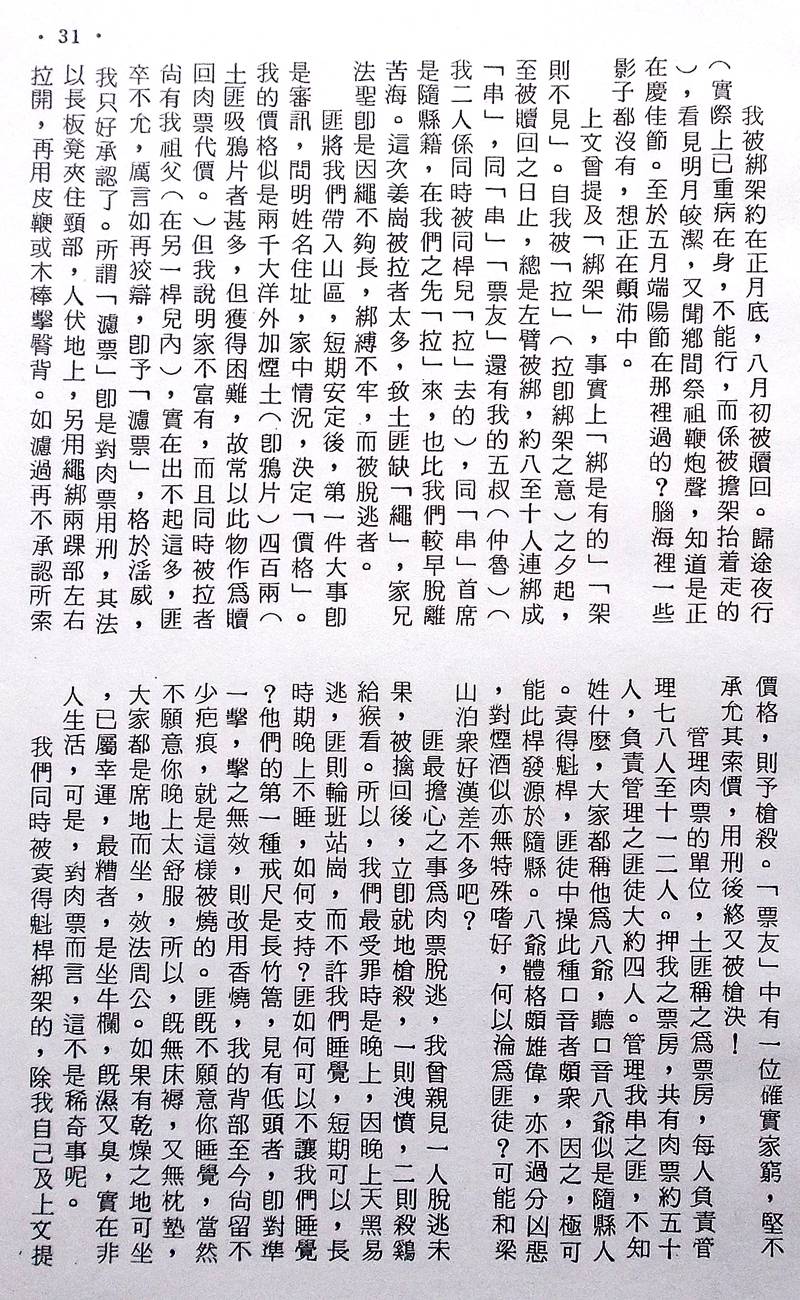 • 31 •
我被綁架約在正月底，八月初被贖回。歸途夜行
（實際上已重病在身，不能行，而係被擔架抬着走的
），看見明月皎潔，又聞鄉間祭祖鞭炮聲，知道是正
在慶佳節。至於五月端陽節在那裡過的？腦海裡一些
影子都沒有，想正在顛沛中。
上文曾提及「綁架」，事實上「綁是有的」「架
則不見」。自我被「拉」（拉卽綁架之意）之夕起，
至被贖回之日止，總是左臂被綁，約八至十人連綁成
「串」，同「串」「票友」還有我的五叔（仲魯）（
我二人係同時被同桿兒「拉」去的），同「串」首席
是隨縣籍，在我們之先「拉」來，也比我們較早脫離
苦海。這次姜崗被拉者太多，致土匪缺「繩」，家兄
法聖卽是因繩不夠長，綁縛不牢，而被脫逃者。
匪將我們帶入山區，短期安定後，第一件大事卽
是審訊，問明姓名住址，家中情況，決定「價格」。
我的價格似是兩千大洋外加煙土（卽鴉片）四百兩（
土匪吸鴉片者甚多，但獲得困難，故常以此物作爲贖
回肉票代價。）但我說明家不富有，而且同時被拉者
尙有我祖父（在另一桿兒內），實在出不起這多，匪
卒不允，厲言如再狡辯，卽予「濾票」，格於滛威，
我只好承認了。所謂「濾票」卽是對肉票用刑，其法
以長板凳夾住頸部，人伏地上，另用繩綁兩踝部左右
拉開，再用皮鞭或木棒擊臀背。如濾過再不承認所索
價格，則予槍殺。「票友」中有一位確實家窮，堅不
承允其索價，用刑後終又被槍決！
管理肉票的單位，土匪稱之爲票房，每人負責管
理七八人至十一二人。押我之票房，共有肉票約五十
人，負責管理之匪徒大約四人。管理我串之匪，不知
姓什麼，大家都稱他爲八爺，聽口音八爺似是隨縣人
。袁得魁桿，匪徒中操此種口音者頗衆，因之，極可
能此桿發源於隨縣。八爺體格頗雄偉，亦不過分凶惡
，對煙酒似亦無特殊嗜好，何以淪爲匪徒？可能和梁
山泊衆好漢差不多吧？
匪最擔心之事爲肉票脫逃，我曾親見一人脫逃未
果，被擒回後，立卽就地槍殺，一則洩憤，二則殺鷄
給猴看。所以，我們最受罪時是晚上，因晚上天黑易
逃，匪則輪班站崗，而不許我們睡覺，短期可以，長
時期晚上不睡，如何支持？匪如何可以不讓我們睡覺
？他們的第一種戒尺是長竹篙，見有低頭者，卽對準
一擊，擊之無效，則改用香燒，我的背部至今尙留不
少疤痕，就是這樣被燒的。匪旣不願意你睡覺，當然
不願意你晚上太舒服，所以，旣無床褥，又無枕墊，
大家都是席地而坐，效法周公。如果有乾燥之地可坐
，已屬幸運，最糟者，是坐牛欄，旣濕又臭，實在非
人生活，可是，對肉票而言，這不是稀奇事呢。
我們同時被袁得魁桿綁架的，除我自己及上文提